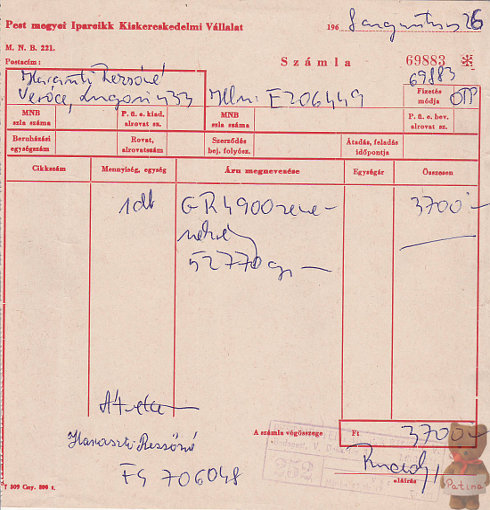 Pest megyei Iparcikk Kiskereskedelmi Vállalat
196 8 augusztus 26
M. N. B. 221.
Számla 69883
Postacím:
69883
Rezsőné
Verőce, 33
E206449
Fizetés módja OTP
MNB szla száma
P. ü. e. kiad. alrovat sz.
MNB szla száma
P. ü. e. bev. alrovat sz.
Beruházási egységszám
Rovat, alrovatszám
Szerződés bej. folyósz.
Átadás, feladás időpontja
Cikkszám Mennyiség, egység Áru megnevezése Egységár Összesen
1 db GR 4900 zene- 3700
52770
Rezsőné
A számla végösszege Ft 3700
706048
aláírás
Patina